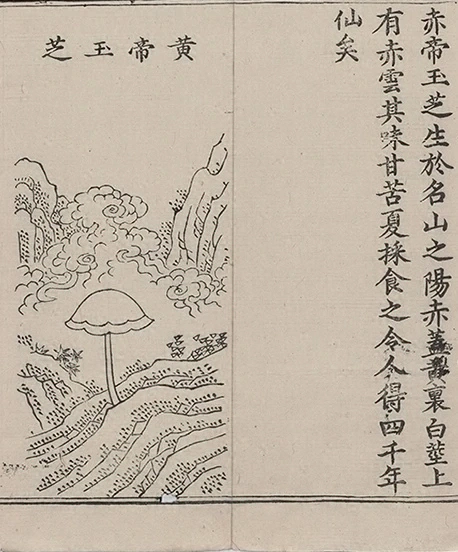 赤帝玉芝生於名山之陽赤蓋裏白莖上
有赤雲其味甘苦夏採食之令人得四千年
仙矣
黃帝玉芝